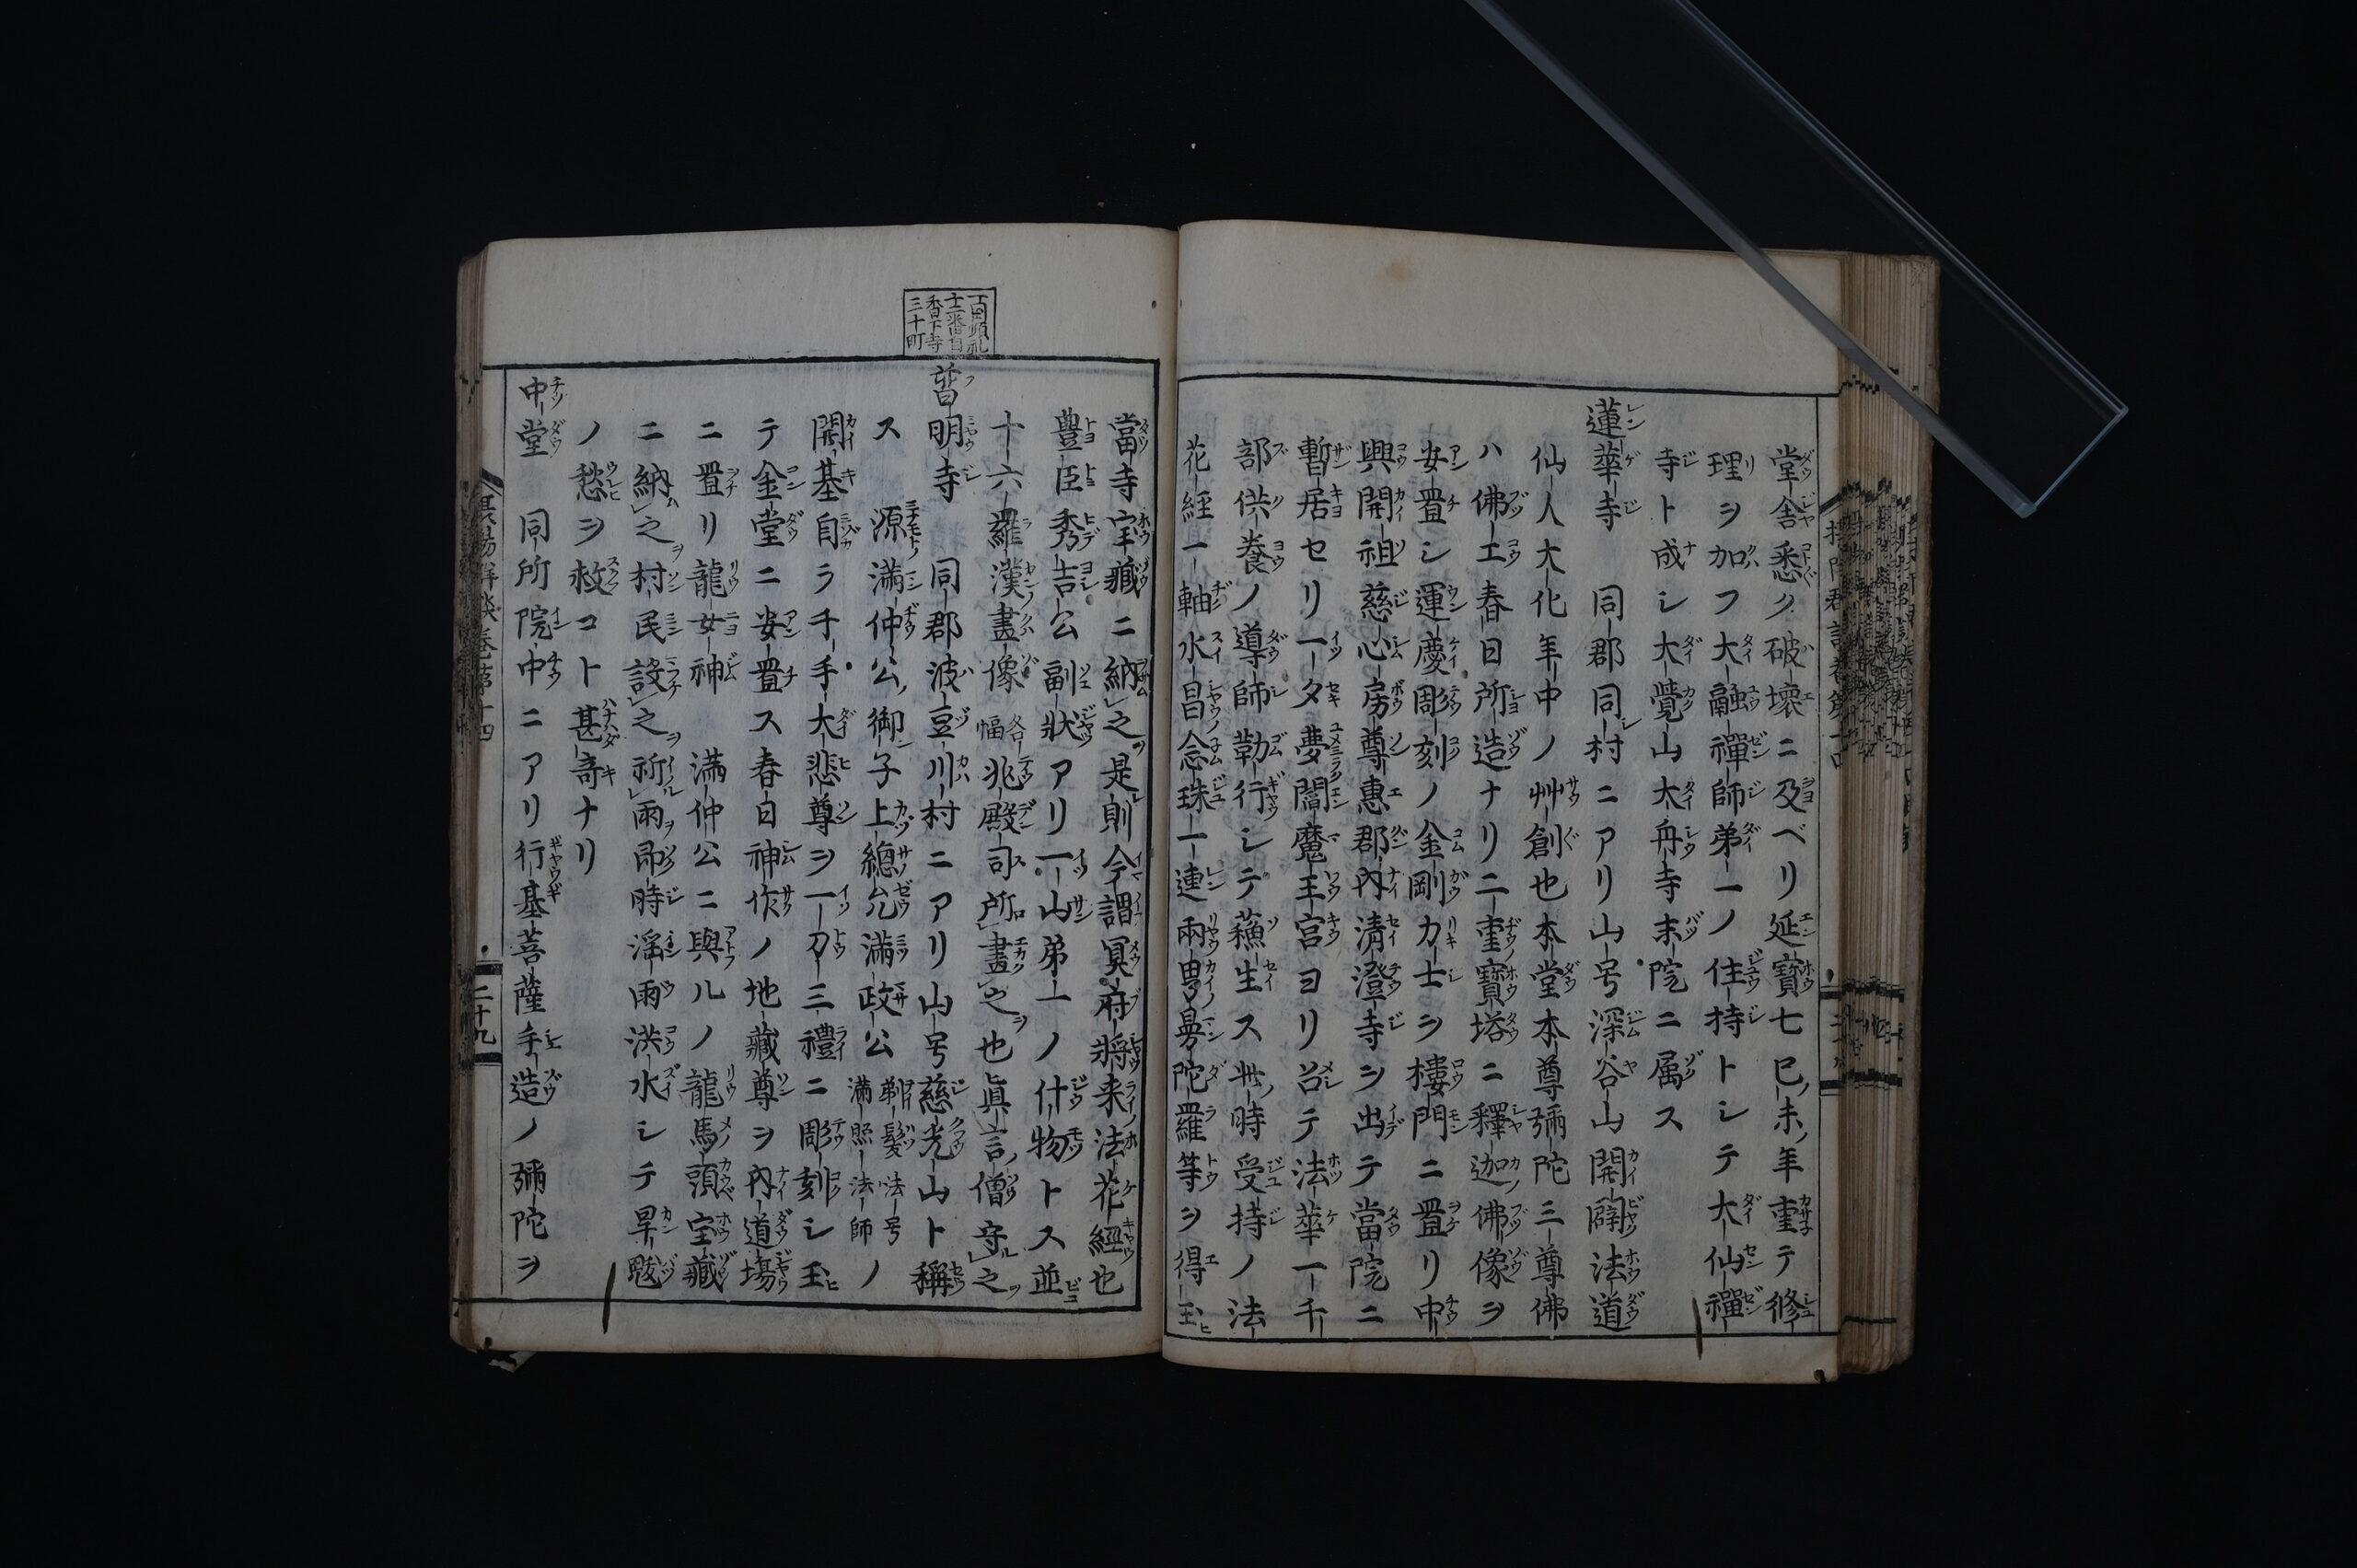 堂舎悉ク破壊ニ及ベリ延寶七巳ノ未ノ年重テ修
理ヲ加フ大融禪師弟一ノ住持トシテ大仙禪
寺ト成シ大覺山大舟寺末院ニ属ス
蓮華寺 同郡同シ村ニアリ山号深谷山開闢法道
仙人大化年中ノ艸創也本堂本尊彌陀三尊佛
ハ佛工春日所造ナリ二重ノ寶塔ニ釋迦ノ佛像ヲ
安置シ運慶彫刻ノ金剛力士ヲ樓門ニ置リ中
興開祖慈心房尊惠郡内清澄寺ヲ出テ當院ニ
暫居セリ一夕夢閻魔王宮ヨリ召テ法華一千
部供養ノ導師勤行シテ蘓生ス此ノ時受持ノ法
花経一軸水昌念珠一連兩界曼陀羅等ヲ得玉ヒ
當寺宝藏ニ納之是則今謂冥府將来法花經也
豊臣秀吉公副状アリ一山弟一ノ什物トス並
十六羅漢畫像各一幅兆殿司所畫之也眞言ノ僧守之
百番順礼
十二番自
香下寺
三十町
普明寺 同郡波豆川村ニアリ山号慈光山ト稱
ス 源満仲公ノ御子上總允満政公剃髮法号満照法師ノ
開基自ラ千手大悲尊ヲ一刀三禮ニ彫刻シ玉ヒ
テ金堂ニ安置ス春日神作ノ地藏尊ヲ内道場
ニ置リ龍女神 満仲公ニ與ルノ龍馬頭宝藏
ニ納之村民設之祈雨即時滛雨洪水シテ旱魃
ノ愁ヲ救コト甚奇ナリ
中堂 同所院中ニアリ行基菩薩手造ノ彌陀ヲ
二十九